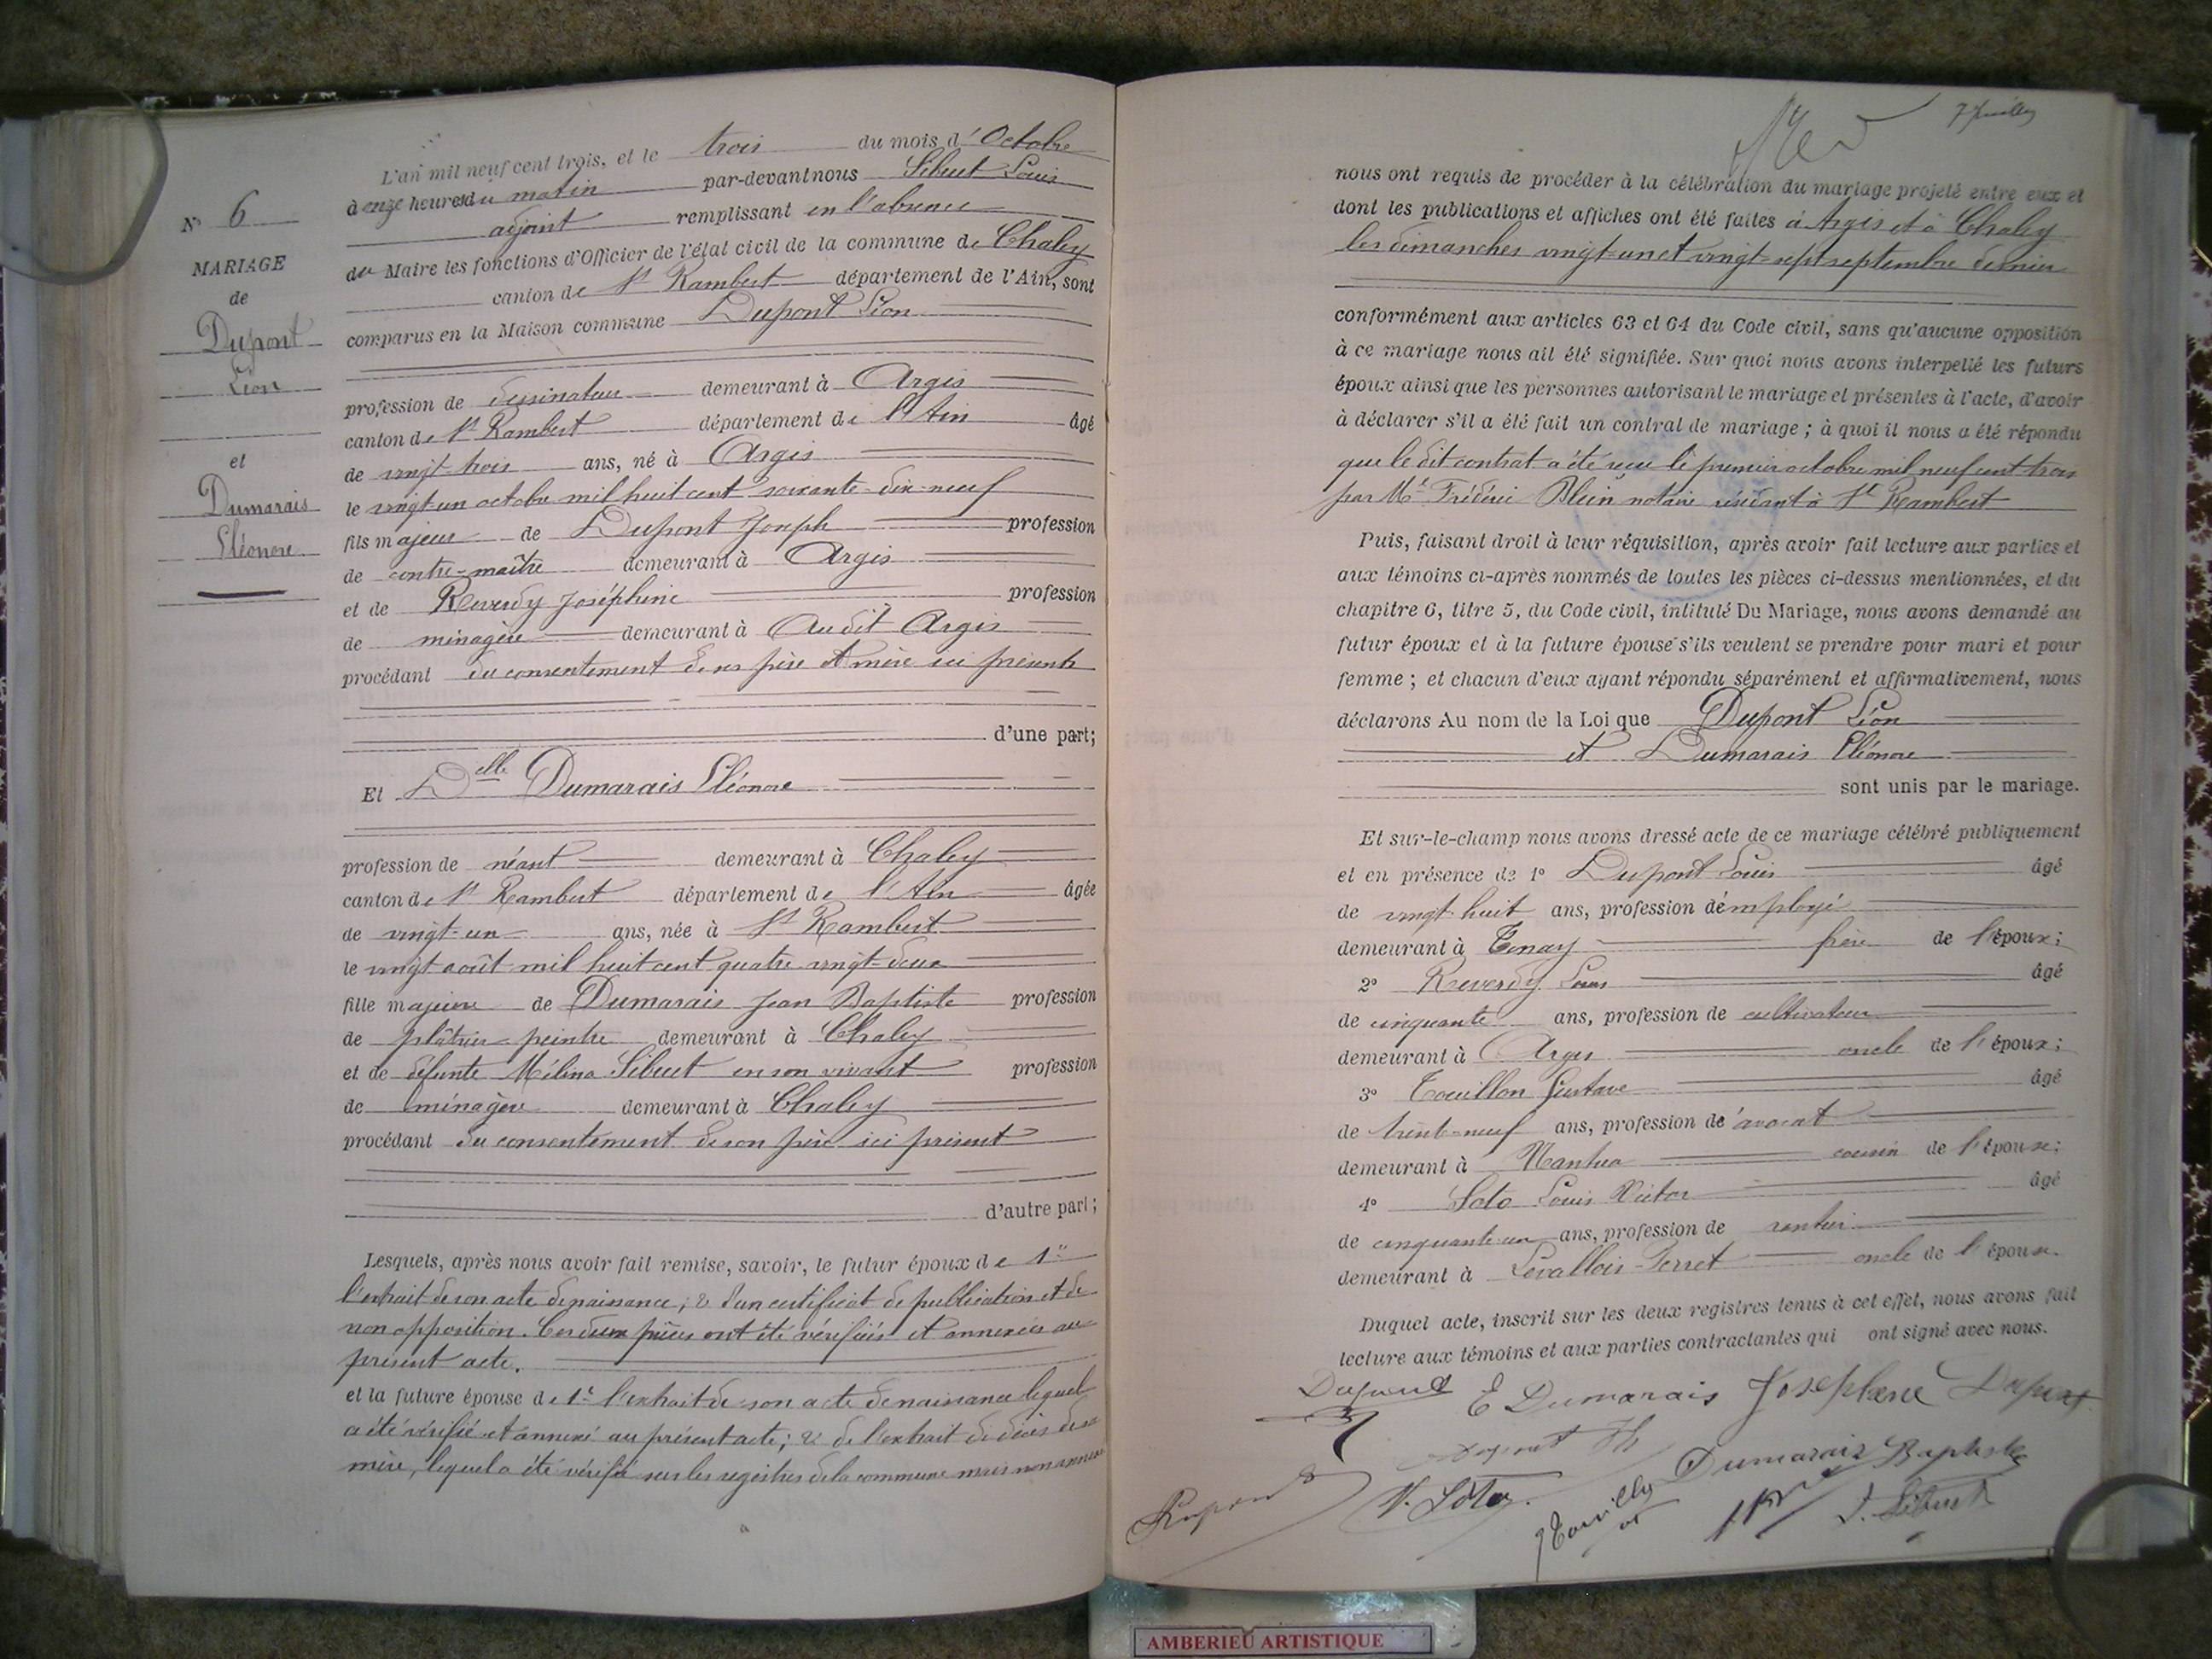 N° 6
MARIAGE
de
Dupont
Léon
et
Dumarais
Eléonore
L'an mil neuf cent trois, et le trois du mois d'Octobre
à onze heures du matin par-devant nous Sibuet Louis
adjoint remplissant en l'absence
du Maire les fonctions d'Officier de l'état civil de la commune de Chaley
canton de St Rambert département de l'Ain, sont
comparus en la Maison commune Dupont Léon
profession de dessinateur demeurant à Argis
canton de St Rambert département de l'Ain âgé
de vingt-trois ans, né à Argis
le vingt un octobre mil huit cent soixante-dix-neuf
fils majeur de Dupont Joseph profession
de contre-maître demeurant à Argis
et de Reverdy Joséphine profession
de ménagère demeurant à Au dit Argis
procédant du consentement de ses père et mère ici présents
d'une part;
Et Delle Dumarais Eléonore
profession de néant demeurant à Chaley
canton de St Rambert département de l'Ain âgée
de vingt-un ans, née à St Rambert
le vingt août mil huit cent quatre vingt-deux
fille majeure de Dumarais Jean Baptiste profession
de plâtrier-peintre demeurant à Chaley
et de défunte Mélina Sibuet en son vivant profession
de ménagère demeurant à Chaley
procédant du consentement de son père ici présent
d'autre part;
Lesquels, après nous avoir fait remise, savoir, le futur époux de 1°
l'extrait de son acte de naissance; 2° d'un certificat de publication et de
non opposition. Ces deux pièces ont été vérifiées et annexées au
présent acte.
et la future épouse de 1° l'extrait de son acte de naissance lequel
a été vérifié et annexé au présent acte; 2° de l'extrait de décès de sa
mère, lequel a été vérifié sur les registres de la commune mais non annexé
nous ont requis de procéder à la célébration du mariage projeté entre eux et
dont les publications et affiches ont été faites à Argis et à Chaley
les dimanches vingt-un et vingt-sept septembre dernier
conformément aux articles 63 et 64 du Code civil, sans qu'aucune opposition
à ce mariage nous ait été signifiée. Sur quoi nous avons interpellé les futurs
époux ainsi que les personnes autorisant le mariage et présentes à l'acte, d'avoir
à déclarer s'il a été fait un contrat de mariage; à quoi il nous a été répondu
que le dit contrat a été reçu le premier octobre mil neuf cent trois
par Me Frédéric Blein notaire résidant à St Rambert
Puis, faisant droit à leur réquisition, après avoir fait lecture aux parties et
aux témoins ci-après nommés de toutes les pièces ci-dessus mentionnées, et du
chapitre 6, titre 5, du Code civil, intitulé Du Mariage, nous avons demandé au
futur époux et à la future épouse s'ils veulent se prendre pour mari et pour
femme; et chacun d'eux ayant répondu séparément et affirmativement, nous
déclarons Au nom de la Loi que Dupont Léon
et Dumarais Eléonore
sont unis par le mariage.
Et sur-le-champ nous avons dressé acte de ce mariage célébré publiquement
et en présence de 1° Dupont Louis âgé
de vingt-huit ans, profession d'employé
demeurant à Tenay frère de l'époux;
2° Reverdy Louis âgé
de cinquante ans, profession de cultivateur
demeurant à Argis oncle de l'époux;
3° Touillon Gustave âgé
de trente-neuf ans, profession de avocat
demeurant à Nantua cousin de l'épouse;
4° Soto Louis Victor âgé
de cinquante-un ans, profession de rentier
demeurant à Levallois-Perret oncle de l'épouse.
Duquel acte, inscrit sur les deux registres tenus à cet effet, nous avons fait
lecture aux témoins et aux parties contractantes qui ont signé avec nous.
Dupont E Dumarais Joséphine Dupont
Dupont Dumarais Baptiste
V. Soto
L. Sibuet
AMBERIEU ARTISTIQUE